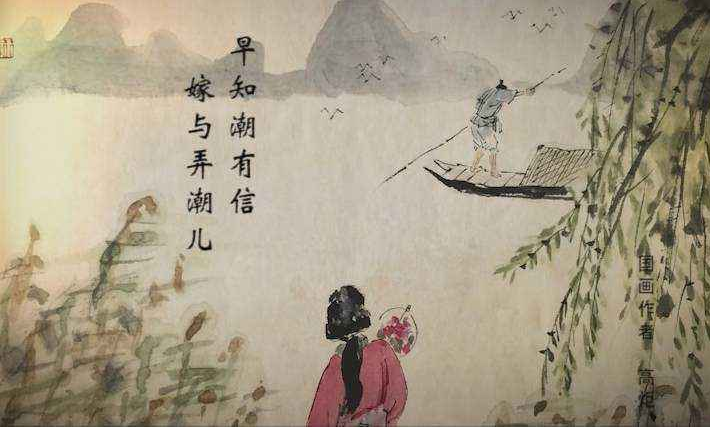 早知潮有信
嫁与弄潮儿
国画作者 高